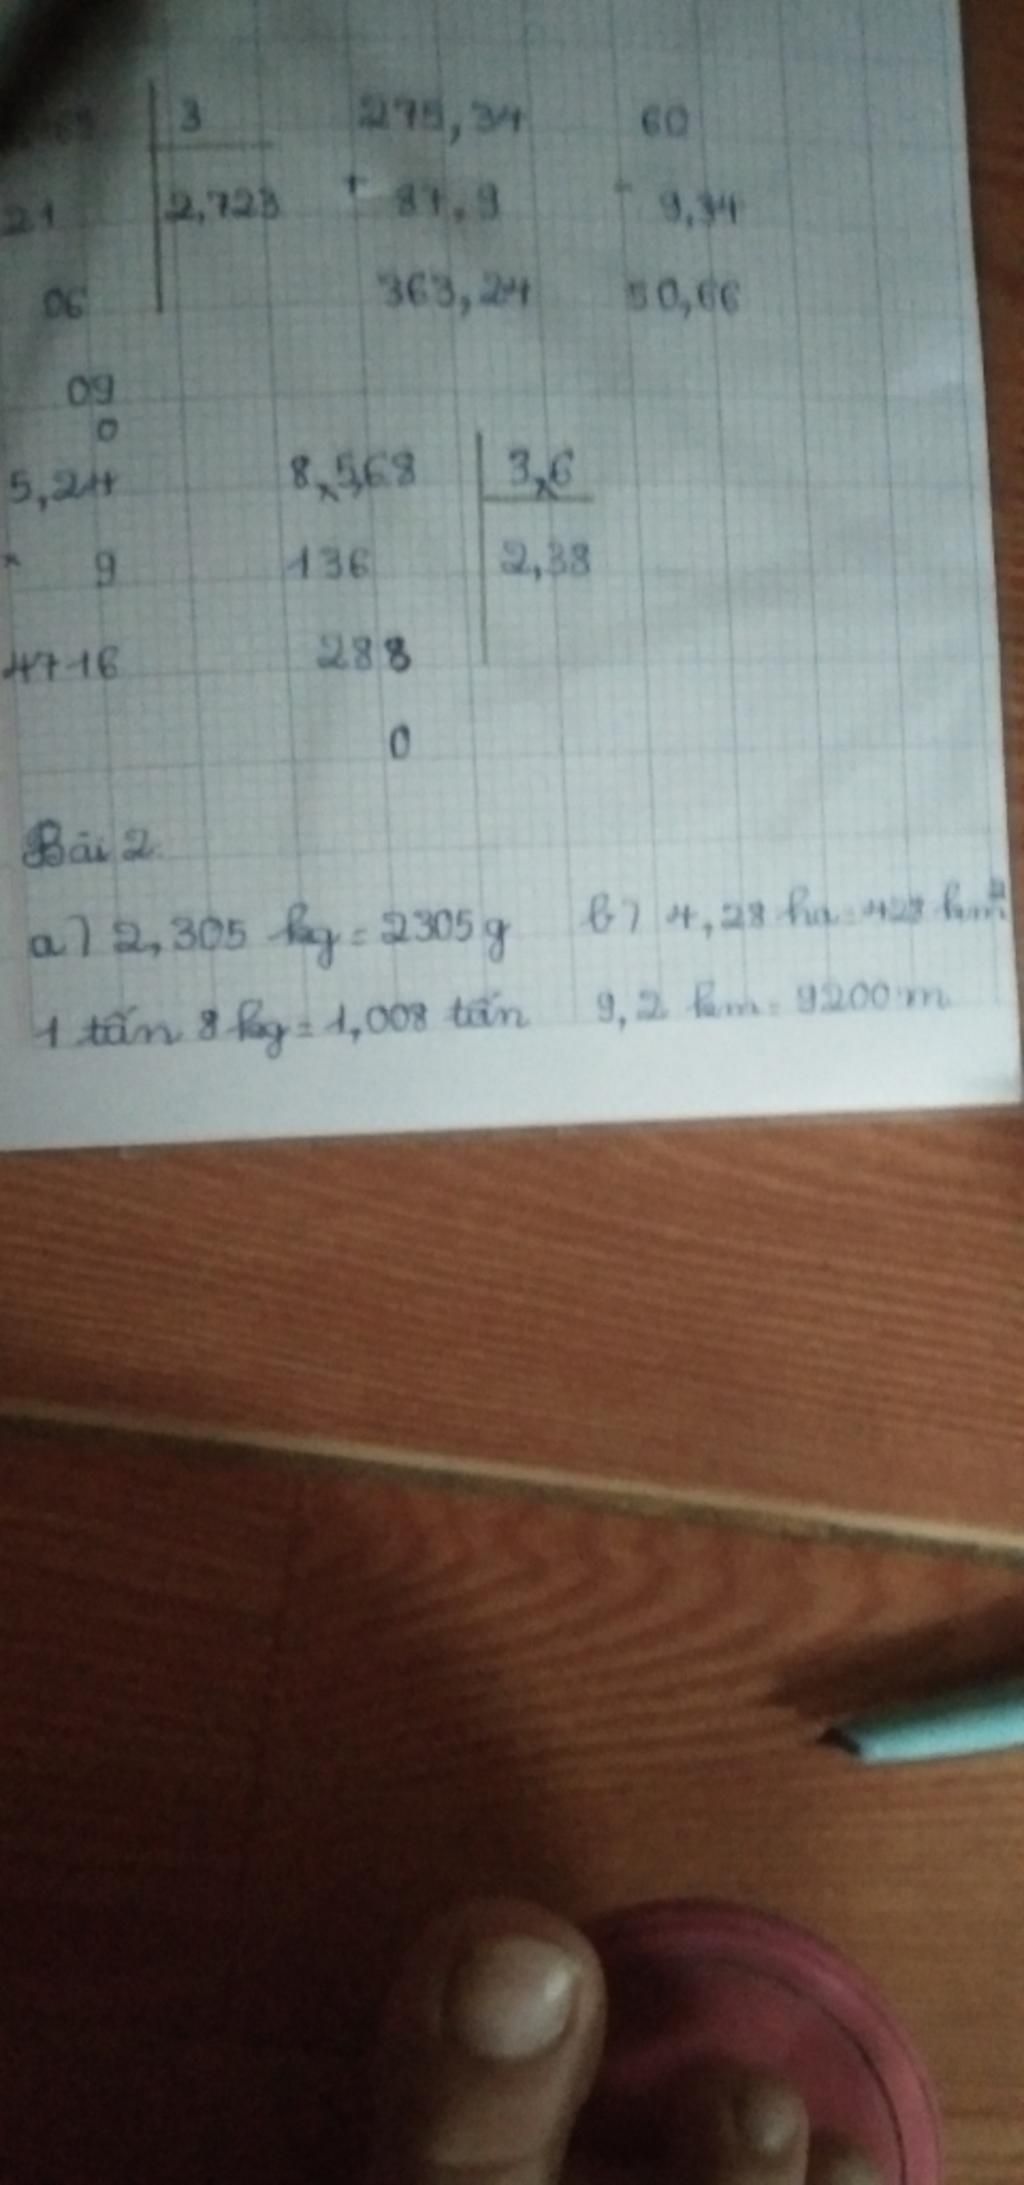 3 275,34 60
21 2,723 + 87,9 - 9,34
06 363,24 50,66
09
0
5,24 8,568 3,6
× 9 136 2,38
4716 288
0
Bài 2
a) 2,305 kg = 2305 g b) 4,28 ha = 428 hm²
1 tấn 8 kg = 1,008 tấn 9,2 km = 9200 m